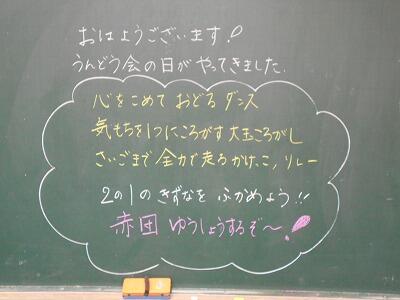 おはようございます!
うんどう会の日がやってきました.
心をこめて おどる ダンス
気もちを1つにころがす 大玉ころがし
さいごまで 全力で走る かけっこ, リレー
2の1の きずなを ふかめよう!!
赤団 ゆうしょうするぞ〜!